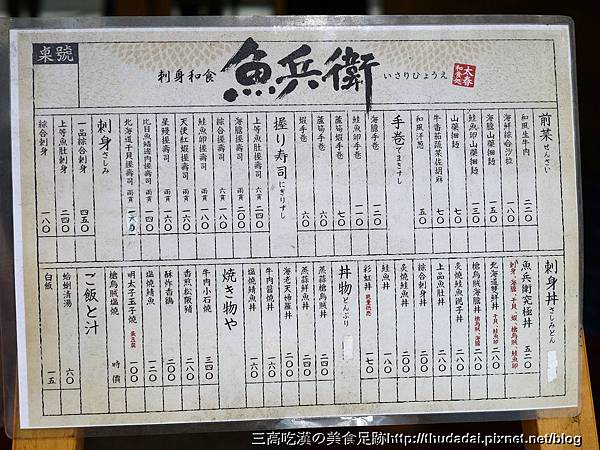 桌號
刺身和食
魚兵衛
いさりひょうえ
太春
和食処
前菜 ぜんさい
和風生牛肉 二二〇
海鮮綜合沙拉 一八〇
海膽山藥細麵 一五〇
鮭魚卵山藥細麵 一三〇
山藥細麵 七〇
牛番茄蔬菜佐胡麻 七〇
和風洋葱 五〇
手卷 てまきずし
海膽手卷 一二〇
鮭魚卵手卷 一一〇
蘆筍蝦手卷 七〇
蘆筍手卷 六〇
蝦手卷 六〇
握り寿司 にぎりずし
上等魚肚握壽司 六貫 二四〇
海膽握壽司 兩貫 二〇〇
綜合握壽司 六貫 一八〇
鮭魚卵握壽司 兩貫 一八〇
天使紅蝦握壽司 兩貫 一六〇
星鰻握壽司 兩貫 一六〇
比目魚鰭邊肉握壽司 兩貫 一四〇
北海道干貝握壽司 兩貫
刺身 さしみ
一品綜合刺身 四五〇
上等魚肚刺身 二四〇
綜合刺身 一八〇
刺身丼 さしみどん
魚兵衛究極丼 五二〇
刺身、海膽、干貝、蝦、槍烏賊、鮭魚卵
北海道雙鮮丼 干貝、鮭魚卵 二八〇
槍烏賊海膽丼 槍烏賊、海膽 二八〇
炙燒鮭魚親子丼 二八〇
上品魚肚丼 二八〇
綜合刺身丼 二二〇
炙燒鮭魚丼 二〇〇
鮭魚丼 一八〇
彩虹丼 限量供應 一七〇
丼物 どんぶり
蒸蒲槍烏賊丼 二四〇
蒸蒲鮮魚丼 二四〇
海老天婦羅丼 二〇〇
牛肉醬燒丼 一六〇
塩燒鯖魚丼 一六〇
焼き物や
牛肉小石燒 三四〇
香煎松阪豬 二八〇
酥炸香鍋 二〇〇
塩燒鯖魚 一二〇
明太子玉子燒 蛋豆腐 一〇〇
槍烏賊塩燒 時價
ご飯と汁
蛤蜊清湯 六〇
白飯 一五
三高吃漢の美食足跡http://thudadai.pixnet.net/blog